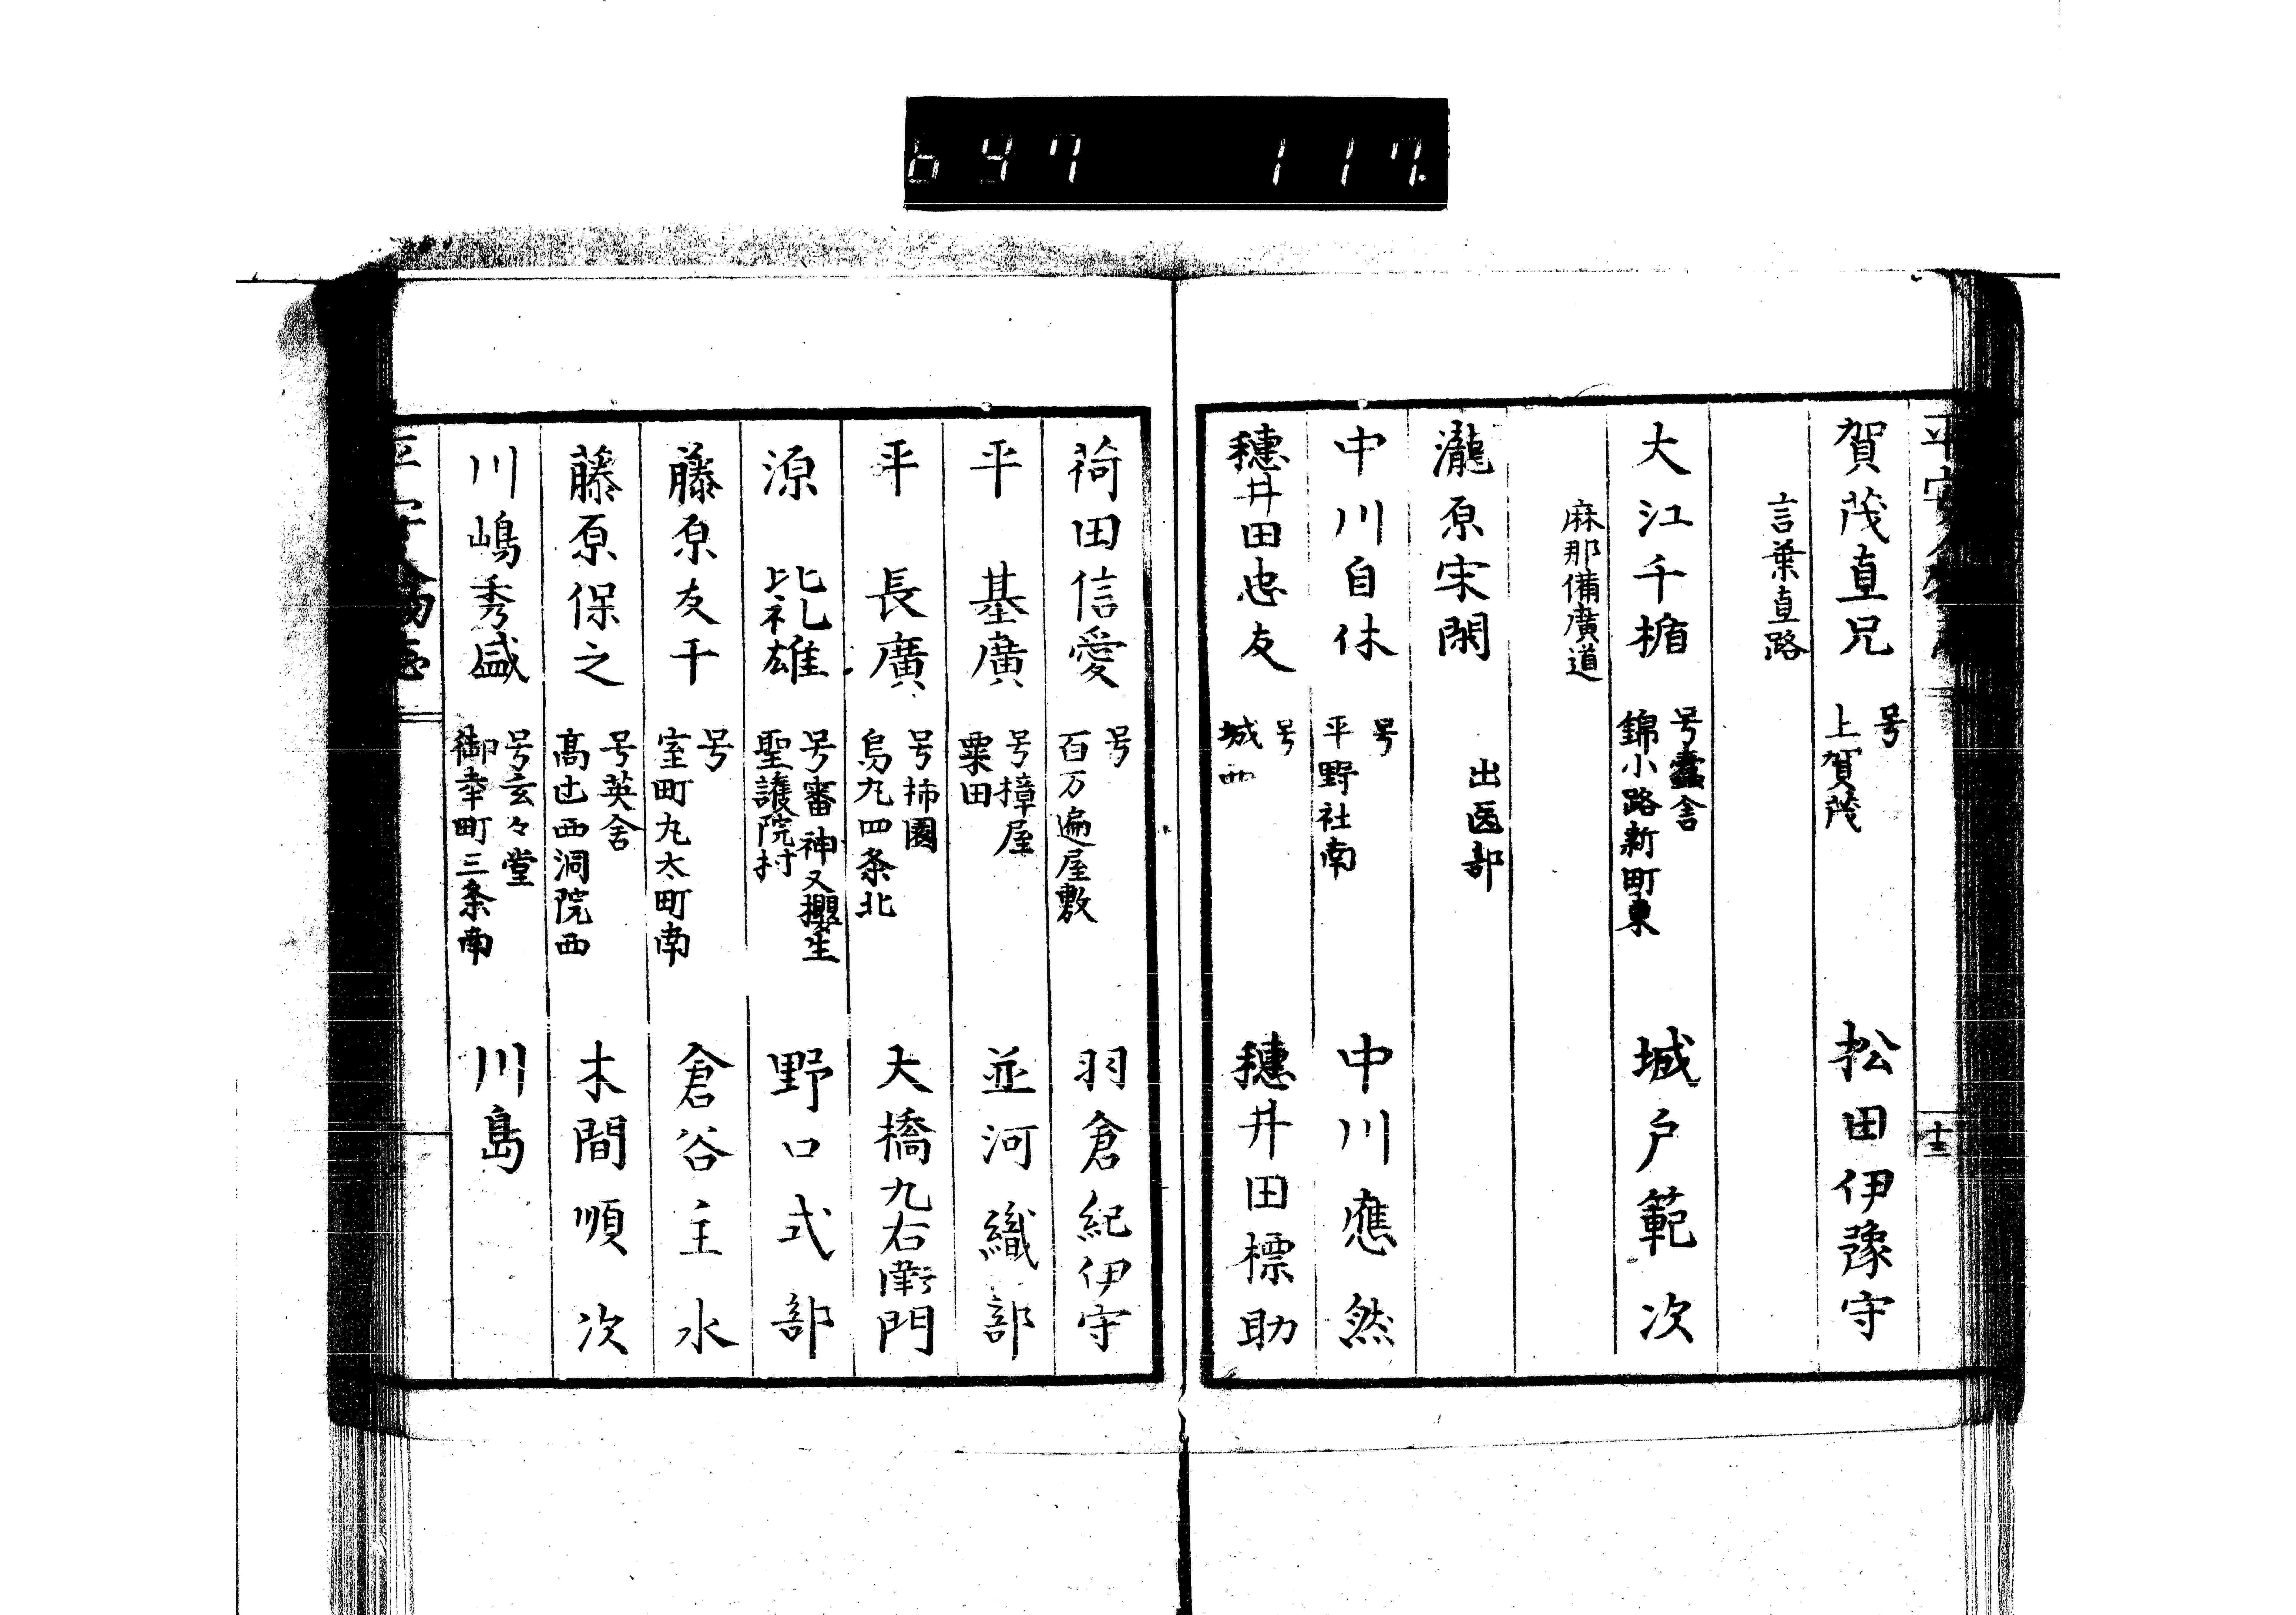 647 117
賀茂直兄 号 上賀茂 松田伊豫守
言葉直路
大江千楯 号蠧舎 錦小路新町東 城戸範次
麻那備廣道
瀧原宋閑 出医部
中川自休 号 平野社南 中川應然
穗井田忠友 号 城西 穗井田標助
十三
荷田信愛 号 百万遍屋敷 羽倉紀伊守
平基廣 号樟屋 粟田 並河織部
平長廣 号柿園 烏丸四条北 大橋九右衛門
源比礼雄 号審神又櫻生 聖護院村 野口式部
藤原友干 号 室町丸太町南 倉谷主水
藤原保之 号英舎 髙辻西洞院西 木間順次
川嶋秀盛 号玄々堂 御幸町三条南 川島
平安人物志